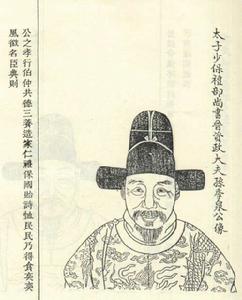 太子少保禮部尚書晉資政大夫孫季泉公像
公之孝行伯仲共德三養造家仁禮保國貽詩恤民民乃得食奕奕
風徽名臣典則